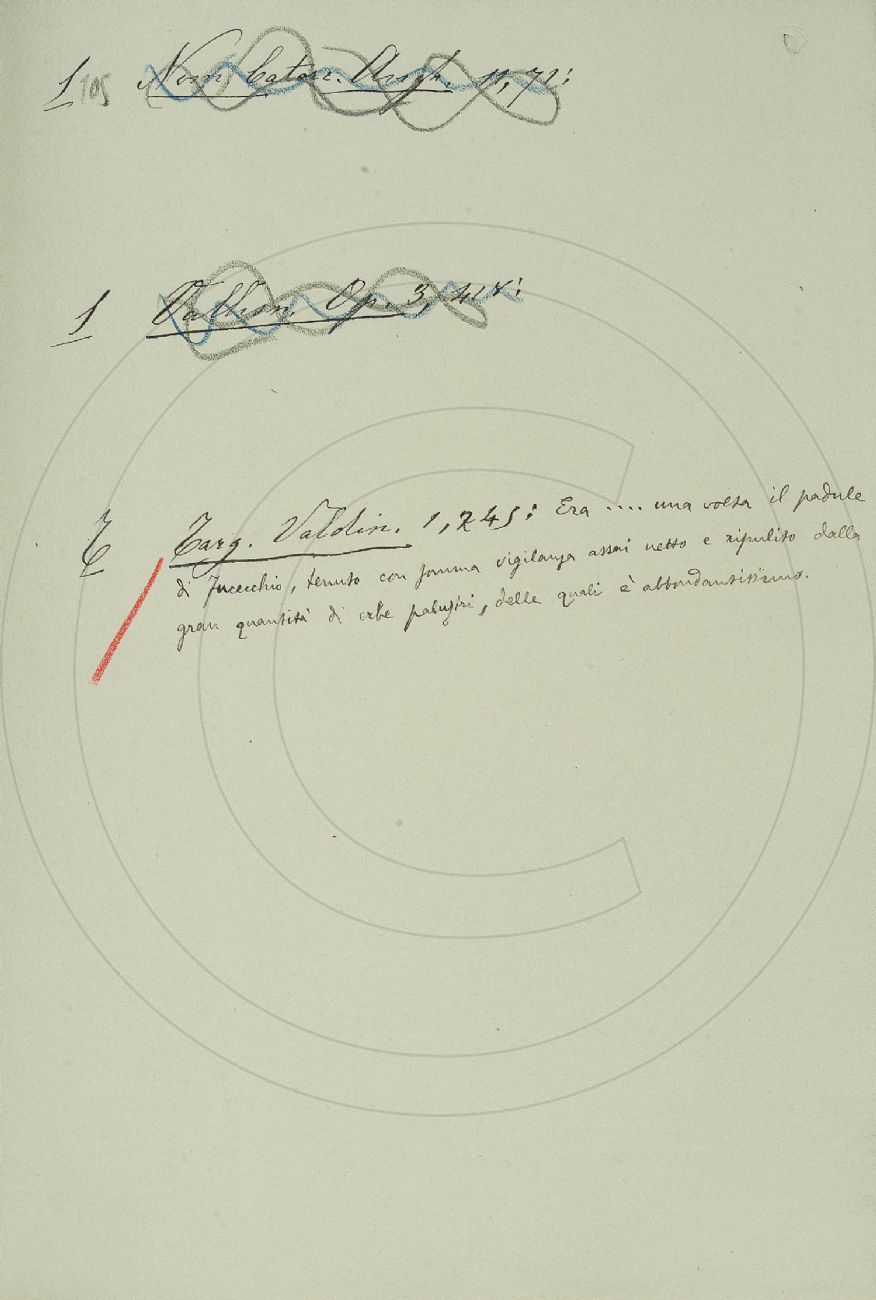 1 105 Nom. Catarr. Angh. 11, 72:
1 Vallisn. Op. 3, 428:
T Targ. Valdin. 1, 245: Era .... una volta il padule
di Fucecchio, tenuto con somma vigilanza assai netto e ripulito dalla
gran quantità di erbe palustri, delle quali è abbondantissimo.